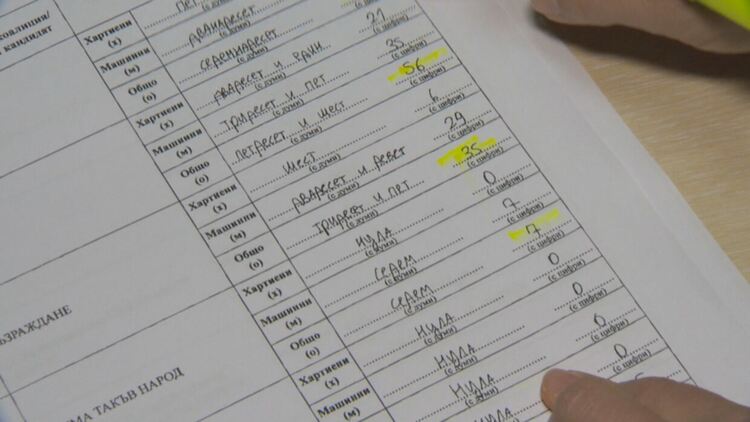 коалиция/
кандидат
Хартиени ПЕТ
(х) (с думи)
Машинни ДВАНАДЕСЕТ
(м) (с думи)
Общо СЕДЕМНАДЕСЕТ
(о) (с думи)
Хартиени ДВАДЕСЕТ И ЕДИН 21
(х) (с думи) (с цифри)
Машинни ТРИДЕСЕТ И ПЕТ 35
(м) (с думи) (с цифри)
Общо ПЕТДЕСЕТ И ШЕСТ 56
(о) (с думи) (с цифри)
Хартиени ШЕСТ 6
(х) (с думи) (с цифри)
Машинни ДВАДЕСЕТ И ДЕВЕТ 29
(м) (с думи) (с цифри)
Общо ТРИДЕСЕТ И ПЕТ 35
(о) (с думи) (с цифри)
ЪЗРАЖДАНЕ
Хартиени НУЛА 0
(х) (с думи) (с цифри)
Машинни СЕДЕМ 7
(м) (с думи) (с цифри)
Общо СЕДЕМ 7
(о) (с думи) (с цифри)
МА ТАКЪВ НАРОД
Хартиени НУЛА 0
(х) (с думи) (с цифри)
Машинни НУЛА 0
(м) (с думи) (с цифри)
НУЛА 0
(с думи) (с цифри)
НУЛА 0
(с цифри)